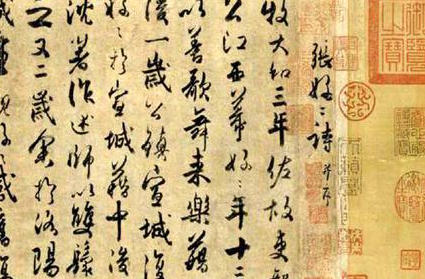 御覽之寶
張好〻詩 并序
牧大和三年佐故吏部
公江西幕好〻年十三
以善歌舞來樂籍
後一歲公鎮宣城復
好〻於宣城籍中後
沈著作述師以雙鬟
之又二歲余於洛陽
城重覩好〻感舊